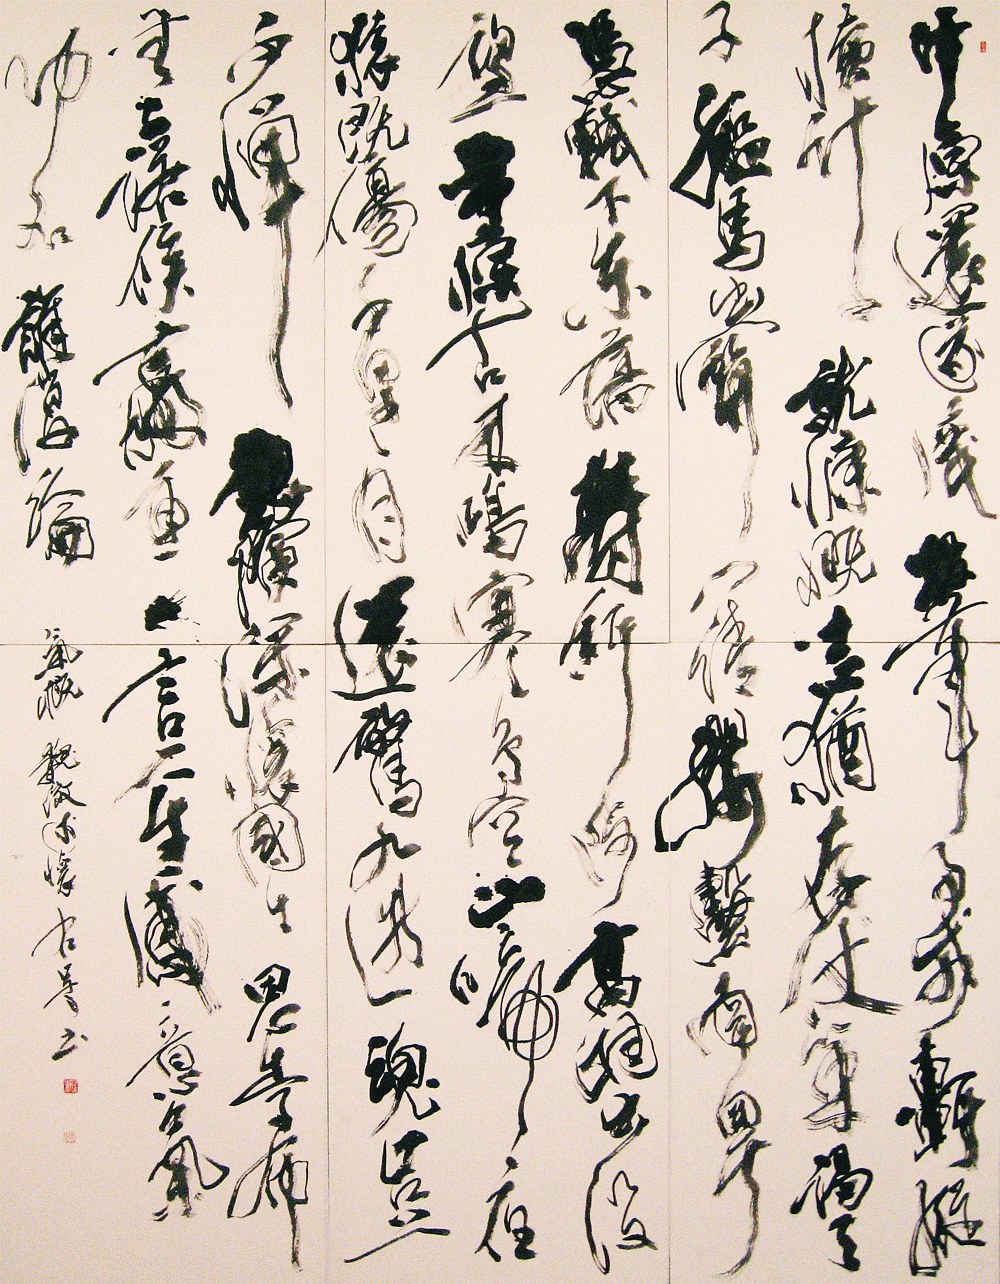 中原還逐鹿投筆事戎軒縱
橫計不就慷慨志猶存仗策謁天
子驅馬出關門請纓繫南粵
憑軾下東藩鬱紆陟高岫出沒
望平原古木鳴寒鳥空山啼夜
猿既傷千里目還驚九逝魂豈
不憚艱險深懷國士恩季布
無二諾侯嬴重一言人生感意氣
功名誰復論 氣概 魏徵述懷 書